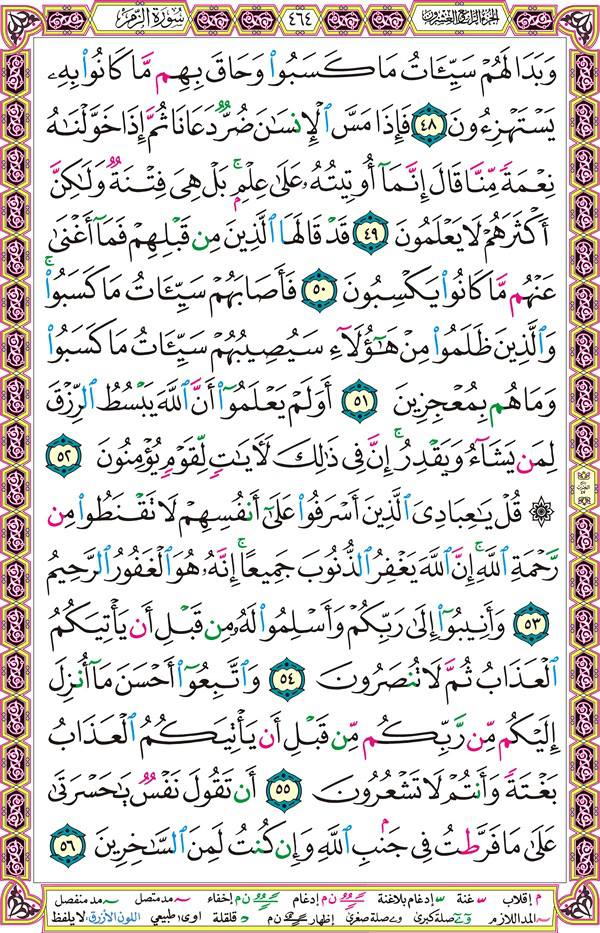 الجزء الرابع والعشرون ٤٦٤ سورة الزمر
وَبَدَا لَهُمْ سَيِّـَٔاتُ مَا كَسَبُوا۟ وَحَاقَ بِهِم مَّا كَانُوا۟ بِهِۦ
يَسْتَهْزِءُونَ ٤٨ فَإِذَا مَسَّ ٱلْإِنسَـٰنَ ضُرٌّ دَعَانَا ثُمَّ إِذَا خَوَّلْنَـٰهُ
نِعْمَةً مِّنَّا قَالَ إِنَّمَآ أُوتِيتُهُۥ عَلَىٰ عِلْمٍۭ ۚ بَلْ هِىَ فِتْنَةٌ وَلَـٰكِنَّ
أَكْثَرَهُمْ لَا يَعْلَمُونَ ٤٩ قَدْ قَالَهَا ٱلَّذِينَ مِن قَبْلِهِمْ فَمَآ أَغْنَىٰ
عَنْهُم مَّا كَانُوا۟ يَكْسِبُونَ ٥٠ فَأَصَابَهُمْ سَيِّـَٔاتُ مَا كَسَبُوا۟ ۚ
وَٱلَّذِينَ ظَلَمُوا۟ مِنْ هَـٰٓؤُلَآءِ سَيُصِيبُهُمْ سَيِّـَٔاتُ مَا كَسَبُوا۟
وَمَا هُم بِمُعْجِزِينَ ٥١ أَوَلَمْ يَعْلَمُوٓا۟ أَنَّ ٱللَّهَ يَبْسُطُ ٱلرِّزْقَ
لِمَن يَشَآءُ وَيَقْدِرُ ۚ إِنَّ فِى ذَٰلِكَ لَـَٔايَـٰتٍ لِّقَوْمٍ يُؤْمِنُونَ ٥٢
۞ قُلْ يَـٰعِبَادِىَ ٱلَّذِينَ أَسْرَفُوا۟ عَلَىٰٓ أَنفُسِهِمْ لَا تَقْنَطُوا۟ مِن
رَّحْمَةِ ٱللَّهِ ۚ إِنَّ ٱللَّهَ يَغْفِرُ ٱلذُّنُوبَ جَمِيعًا ۚ إِنَّهُۥ هُوَ ٱلْغَفُورُ ٱلرَّحِيمُ
٥٣ وَأَنِيبُوٓا۟ إِلَىٰ رَبِّكُمْ وَأَسْلِمُوا۟ لَهُۥ مِن قَبْلِ أَن يَأْتِيَكُمُ
ٱلْعَذَابُ ثُمَّ لَا تُنصَرُونَ ٥٤ وَٱتَّبِعُوٓا۟ أَحْسَنَ مَآ أُنزِلَ
إِلَيْكُم مِّن رَّبِّكُم مِّن قَبْلِ أَن يَأْتِيَكُمُ ٱلْعَذَابُ
بَغْتَةً وَأَنتُمْ لَا تَشْعُرُونَ ٥٥ أَن تَقُولَ نَفْسٌ يَـٰحَسْرَتَىٰ
عَلَىٰ مَا فَرَّطتُ فِى جَنۢبِ ٱللَّهِ وَإِن كُنتُ لَمِنَ ٱلسَّـٰخِرِينَ ٥٦
م إقلاب غنة إدغام بلاغنة ن م إدغام إخفاء مد متصل مد منفصل
المد اللازم صلة كبرى صلة صغرى إظهار ن م قلقلة اوى: طبيعي اللون الأزرق: لا يلفظ